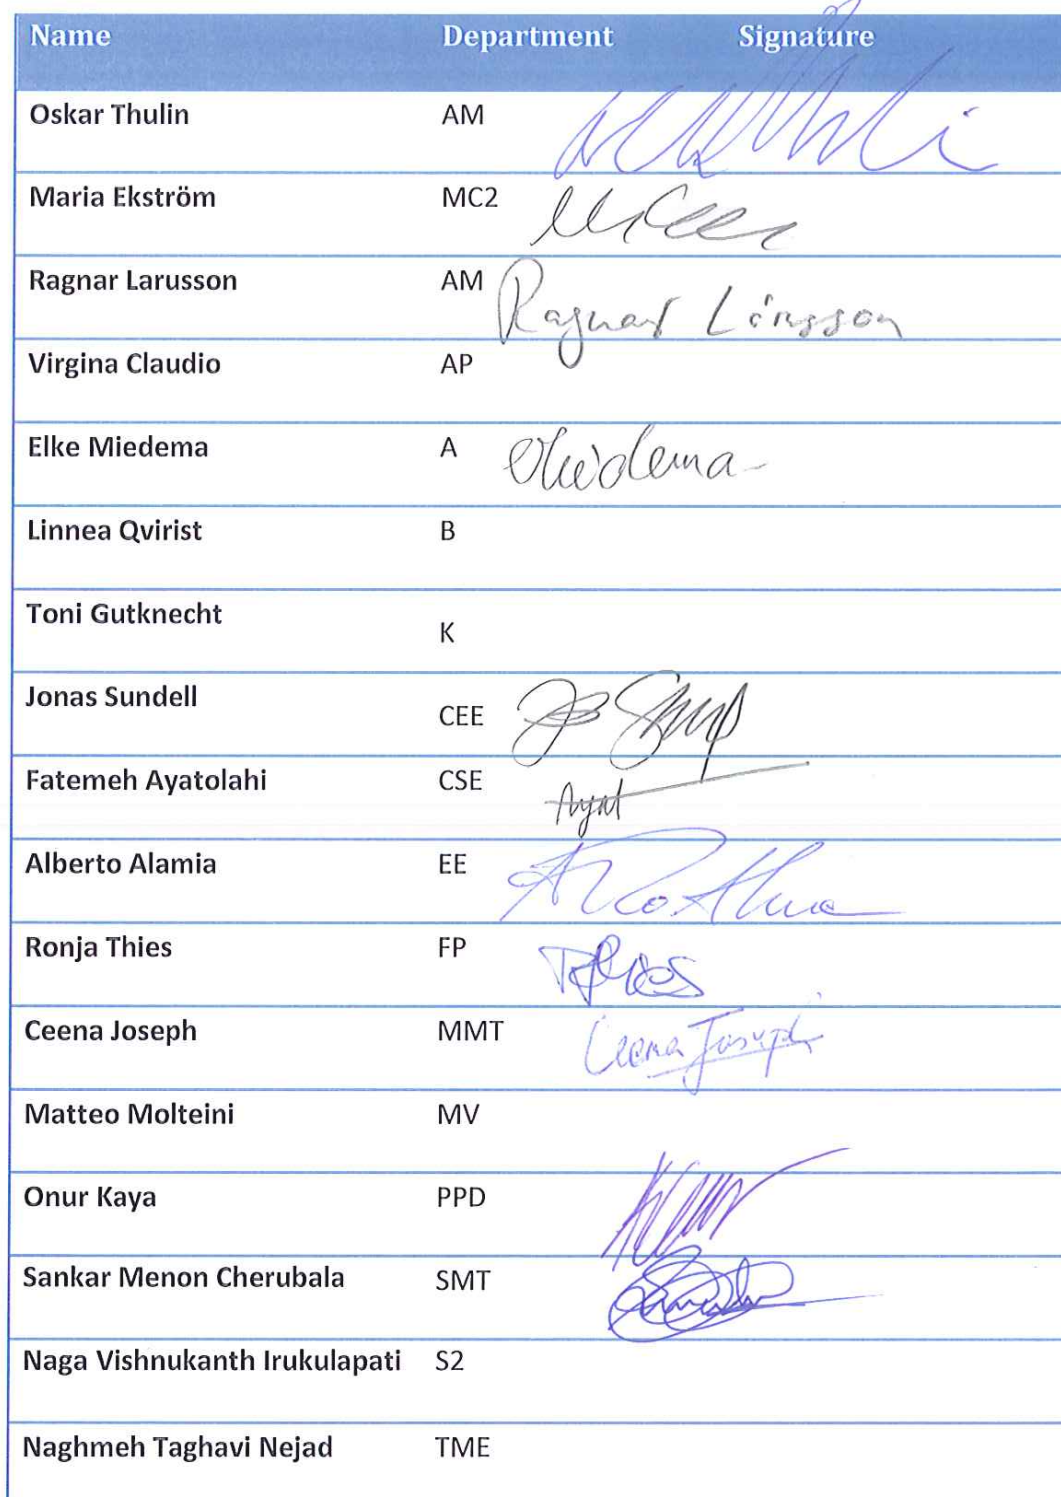 Name Department Signature
Oskar Thulin AM
Maria Ekström MC2
Ragnar Larusson AM Ragnar Lárusson
Virgina Claudio AP
Elke Miedema A Miedema
Linnea Qvirist B
Toni Gutknecht K
Jonas Sundell CEE
Fatemeh Ayatolahi CSE Ayat
Alberto Alamia EE
Ronja Thies FP RThies
Ceena Joseph MMT Ceena Joseph
Matteo Molteini MV
Onur Kaya PPD
Sankar Menon Cherubala SMT
Naga Vishnukanth Irukulapati S2
Naghmeh Taghavi Nejad TME